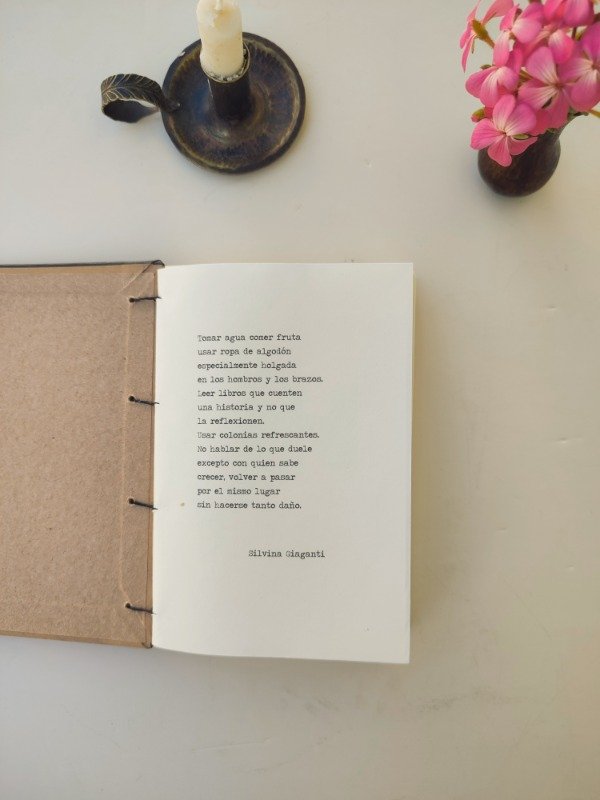 Tomar agua comer fruta
usar ropa de algodón
especialmente holgada
en los hombros y los brazos.
Leer libros que cuenten
una historia y no que
la reflexionen.
Usar colonias refrescantes.
No hablar de lo que duele
excepto con quien sabe
crecer, volver a pasar
por el mismo lugar
sin hacerse tanto daño.
Silvina Giaganti